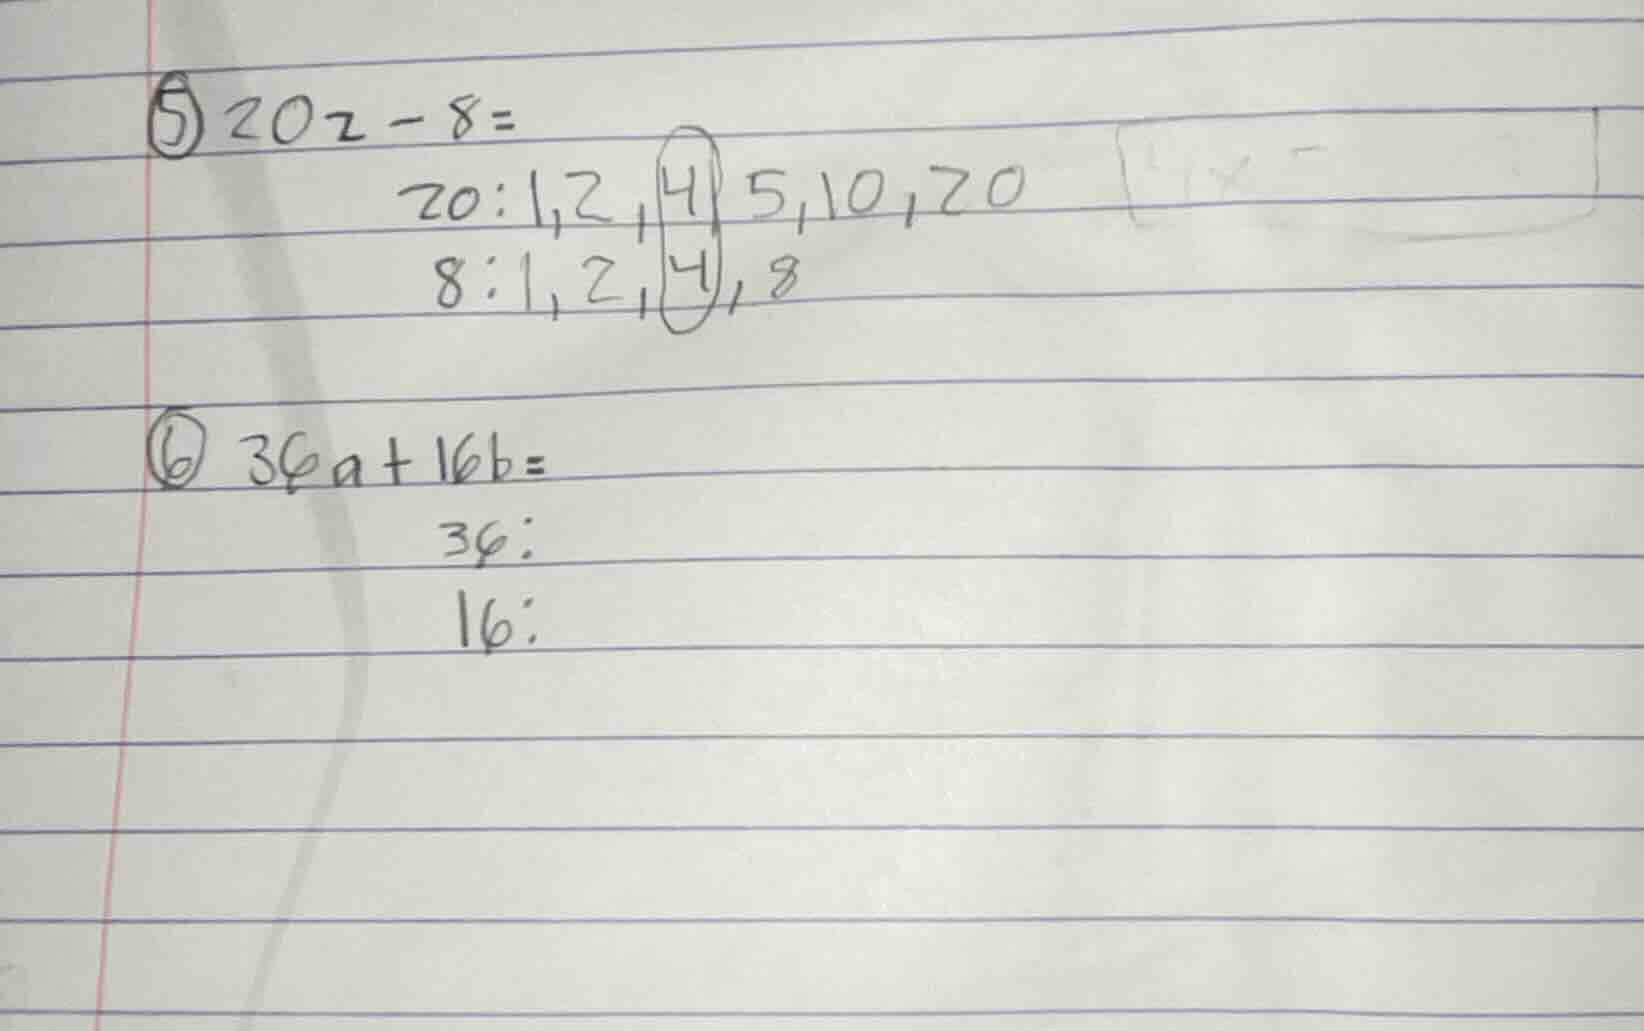 5) 20z - 8 =
20: 1, 2, 4, 5, 10, 20
8: 1, 2, 4, 8
6) 36a + 16b =
36:
16: